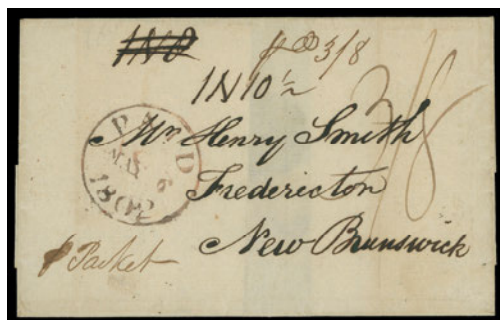 1N8 pd 3/8
1N10½
3/8
PAID
MAY 6
1802
Mr Henry Smith
Fredericton
New Brunswick
p Packet